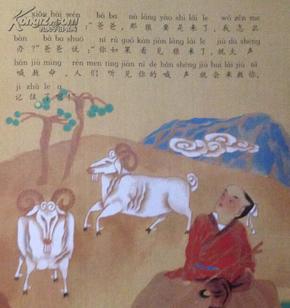 xiǎo hái wèn bà ba nà láng yào shi lái le wǒ zěn me
小孩问:“爸爸,那狼要是来了,我怎么
bàn bà ba shuō nǐ rú guǒ kàn jiàn láng lái le jiù dà shēng
办?”爸爸说:“你如果看见狼来了,就大声
hǎn jiù mìng rén men tīng jiàn nǐ de hǎn shēng jiù huì lái jiù nǐ
喊救命,人们听见你的喊声就会来救你,
jì zhù le
记住